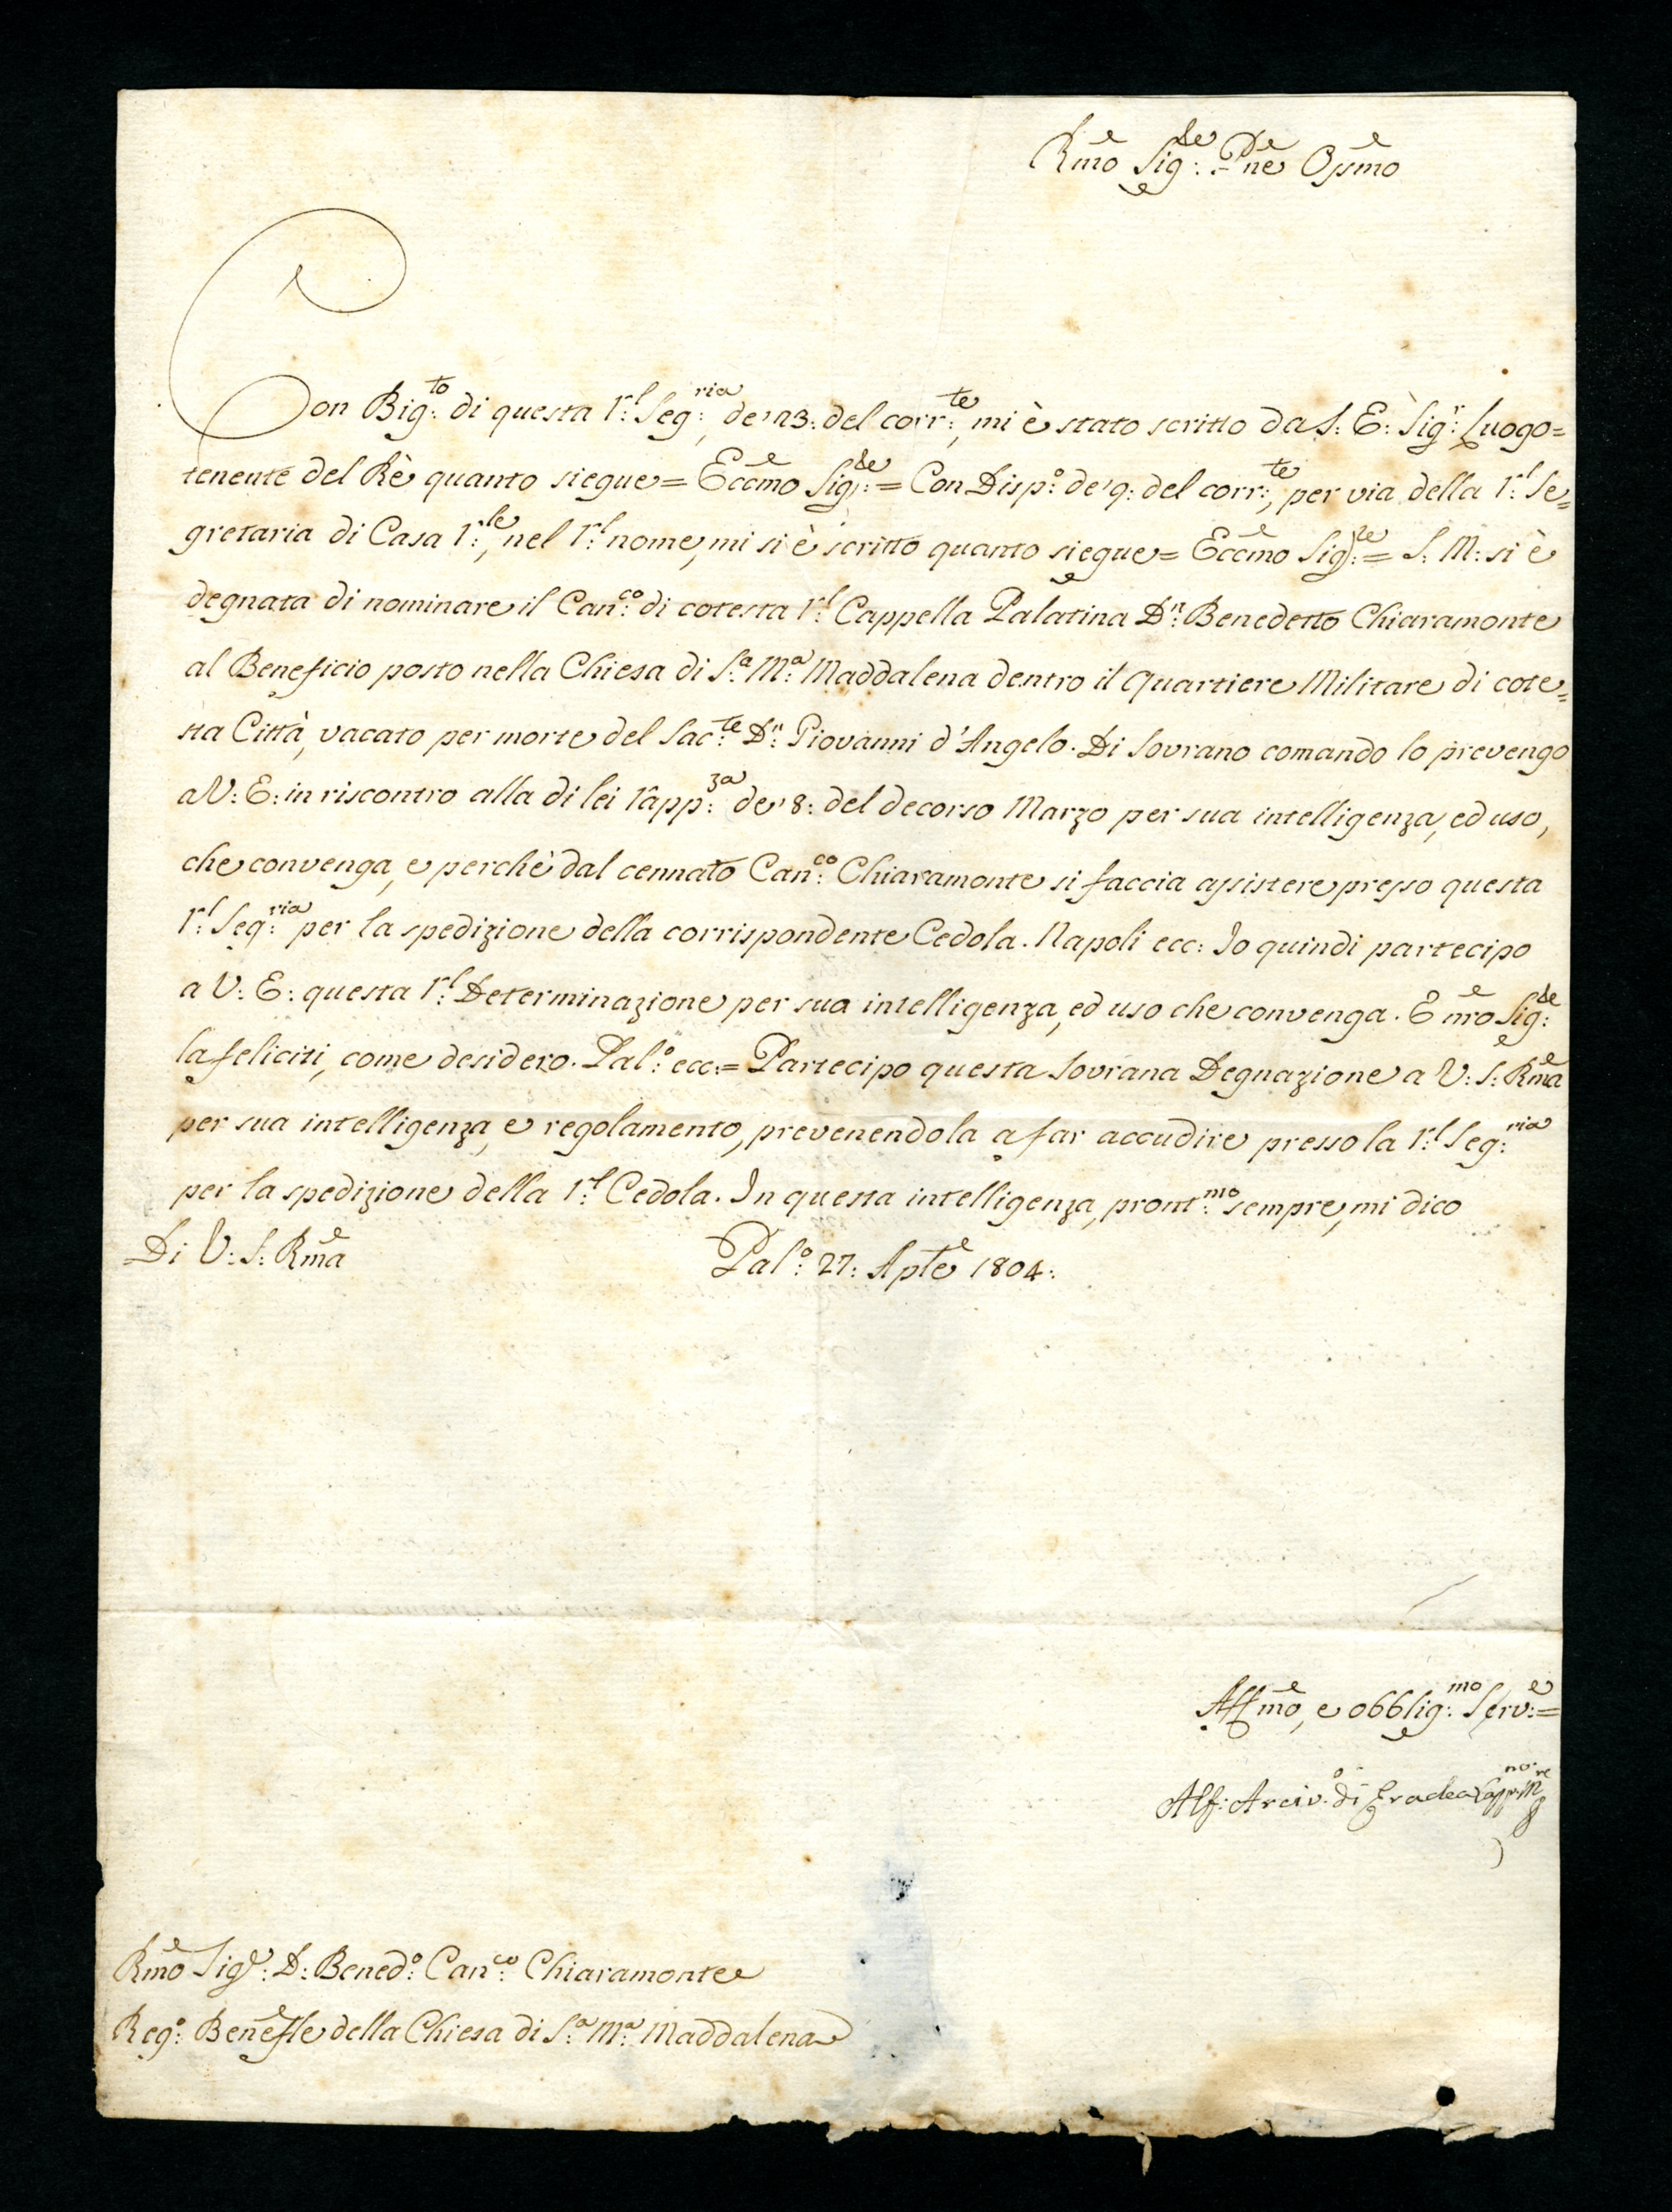 Rmo Sig:re Pne Ossmo
Con Big:to di questa R:l Seg:ria de' 23: del corr:te, mi è stato scritto da S: E: Sig:r Luogo=
tenente del Rè quanto siegue= Eccmo Sig:re= Con Disp:o de' 9: del corr:te, per via della R:l Se=
gretaria di Casa R:le, nel R:l nome, mi si è scritto quanto siegue= Eccmo Sig:re= S: M: si è
degnata di nominare il Can:co di cotesta R:l Cappella Palatina D:n Benedetto Chiaramonte
al Beneficio posto nella Chiesa di S:a M:a Maddalena dentro il Quartiere Militare di cote=
sta Città, vacato per morte del Sac:te D:n Giovanni d'Angelo. Di Sovrano comando lo prevengo
a V: E: in riscontro alla di lei Rapp:za de' 8: del decorso Marzo per sua intelligenza, ed uso,
che convenga, e perchè dal cennato Can:co Chiaramonte si faccia assistere presso questa
R:l Seg:ria per la spedizione della corrispondente Cedola. Napoli ecc: Io quindi partecipo
a V: E: questa R:l Determinazione per sua intelligenza, ed uso che convenga. E nro Sig:re
la feliciti, come desidero. Pal:o ecc:= Partecipo questa Sovrana Degnazione a V: S: Rma
per sua intelligenza, e regolamento, prevenendola a far accudire presso la R:l Seg:ria
per la spedizione della R:l Cedola. In questa intelligenza, pront:mo sempre, mi dico
Di V: S: Rma Pal:o 27: Aple 1804:
Affmo, e obblig:mo Serv:e=
Alf: Arciv:o di Eraclea Capp:no M:re
Rmo Sig:r D: Bened:o Can:co Chiaramonte
Reg:o Benefle della Chiesa di S:a M:a Maddalena